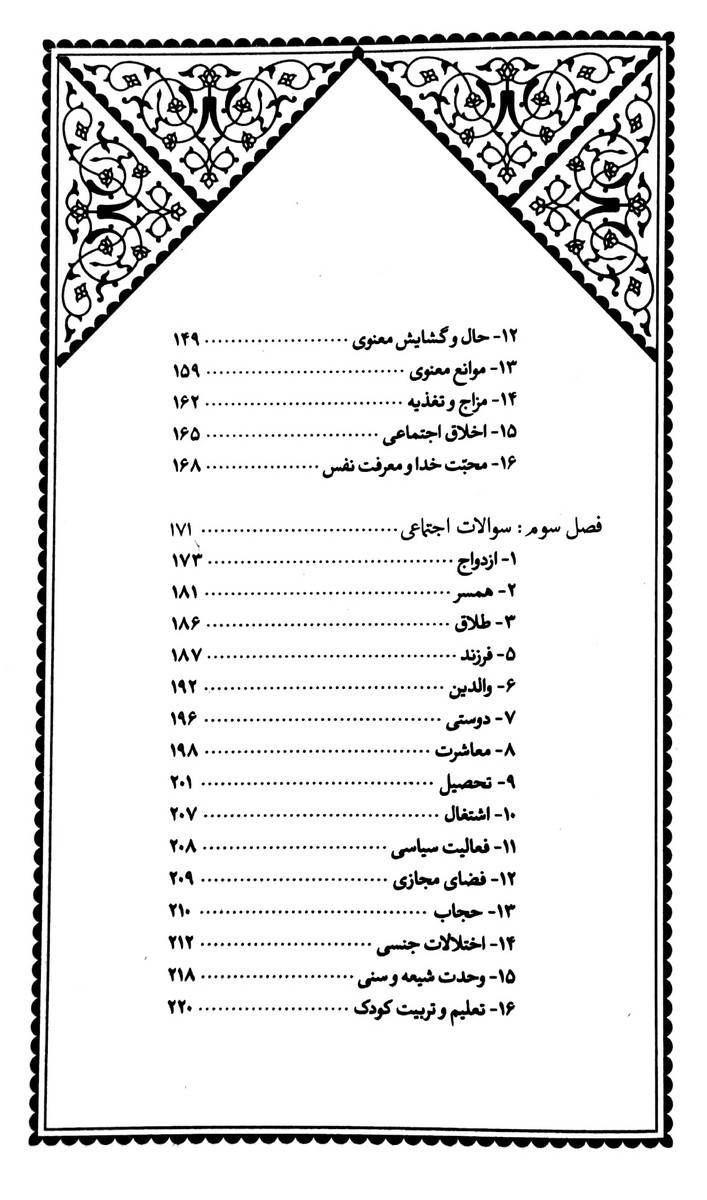 ۱۲- حال و گشایش معنوی ...................... ۱۴۹
۱۳- موانع معنوی .............................. ۱۵۹
۱۴- مزاج و تغذیه .............................. ۱۶۲
۱۵- اخلاق اجتماعی .......................... ۱۶۵
۱۶- محبّت خدا و معرفت نفس ................. ۱۶۸
فصل سوم: سوالات اجتماعی .............................. ۱۷۱
۱- ازدواج ..................................... ۱۷۳
۲- همسر ..................................... ۱۸۱
۳- طلاق ..................................... ۱۸۶
۵- فرزند ..................................... ۱۸۷
۶- والدین .................................... ۱۹۲
۷- دوستی .................................... ۱۹۶
۸- معاشرت .................................. ۱۹۸
۹- تحصیل ................................... ۲۰۱
۱۰- اشتغال ................................... ۲۰۷
۱۱- فعالیت سیاسی ............................ ۲۰۸
۱۲- فضای مجازی ............................ ۲۰۹
۱۳- حجاب .................................. ۲۱۰
۱۴- اختلالات جنسی .......................... ۲۱۲
۱۵- وحدت شیعه و سنی ....................... ۲۱۸
۱۶- تعلیم و تربیت کودک ...................... ۲۲۰